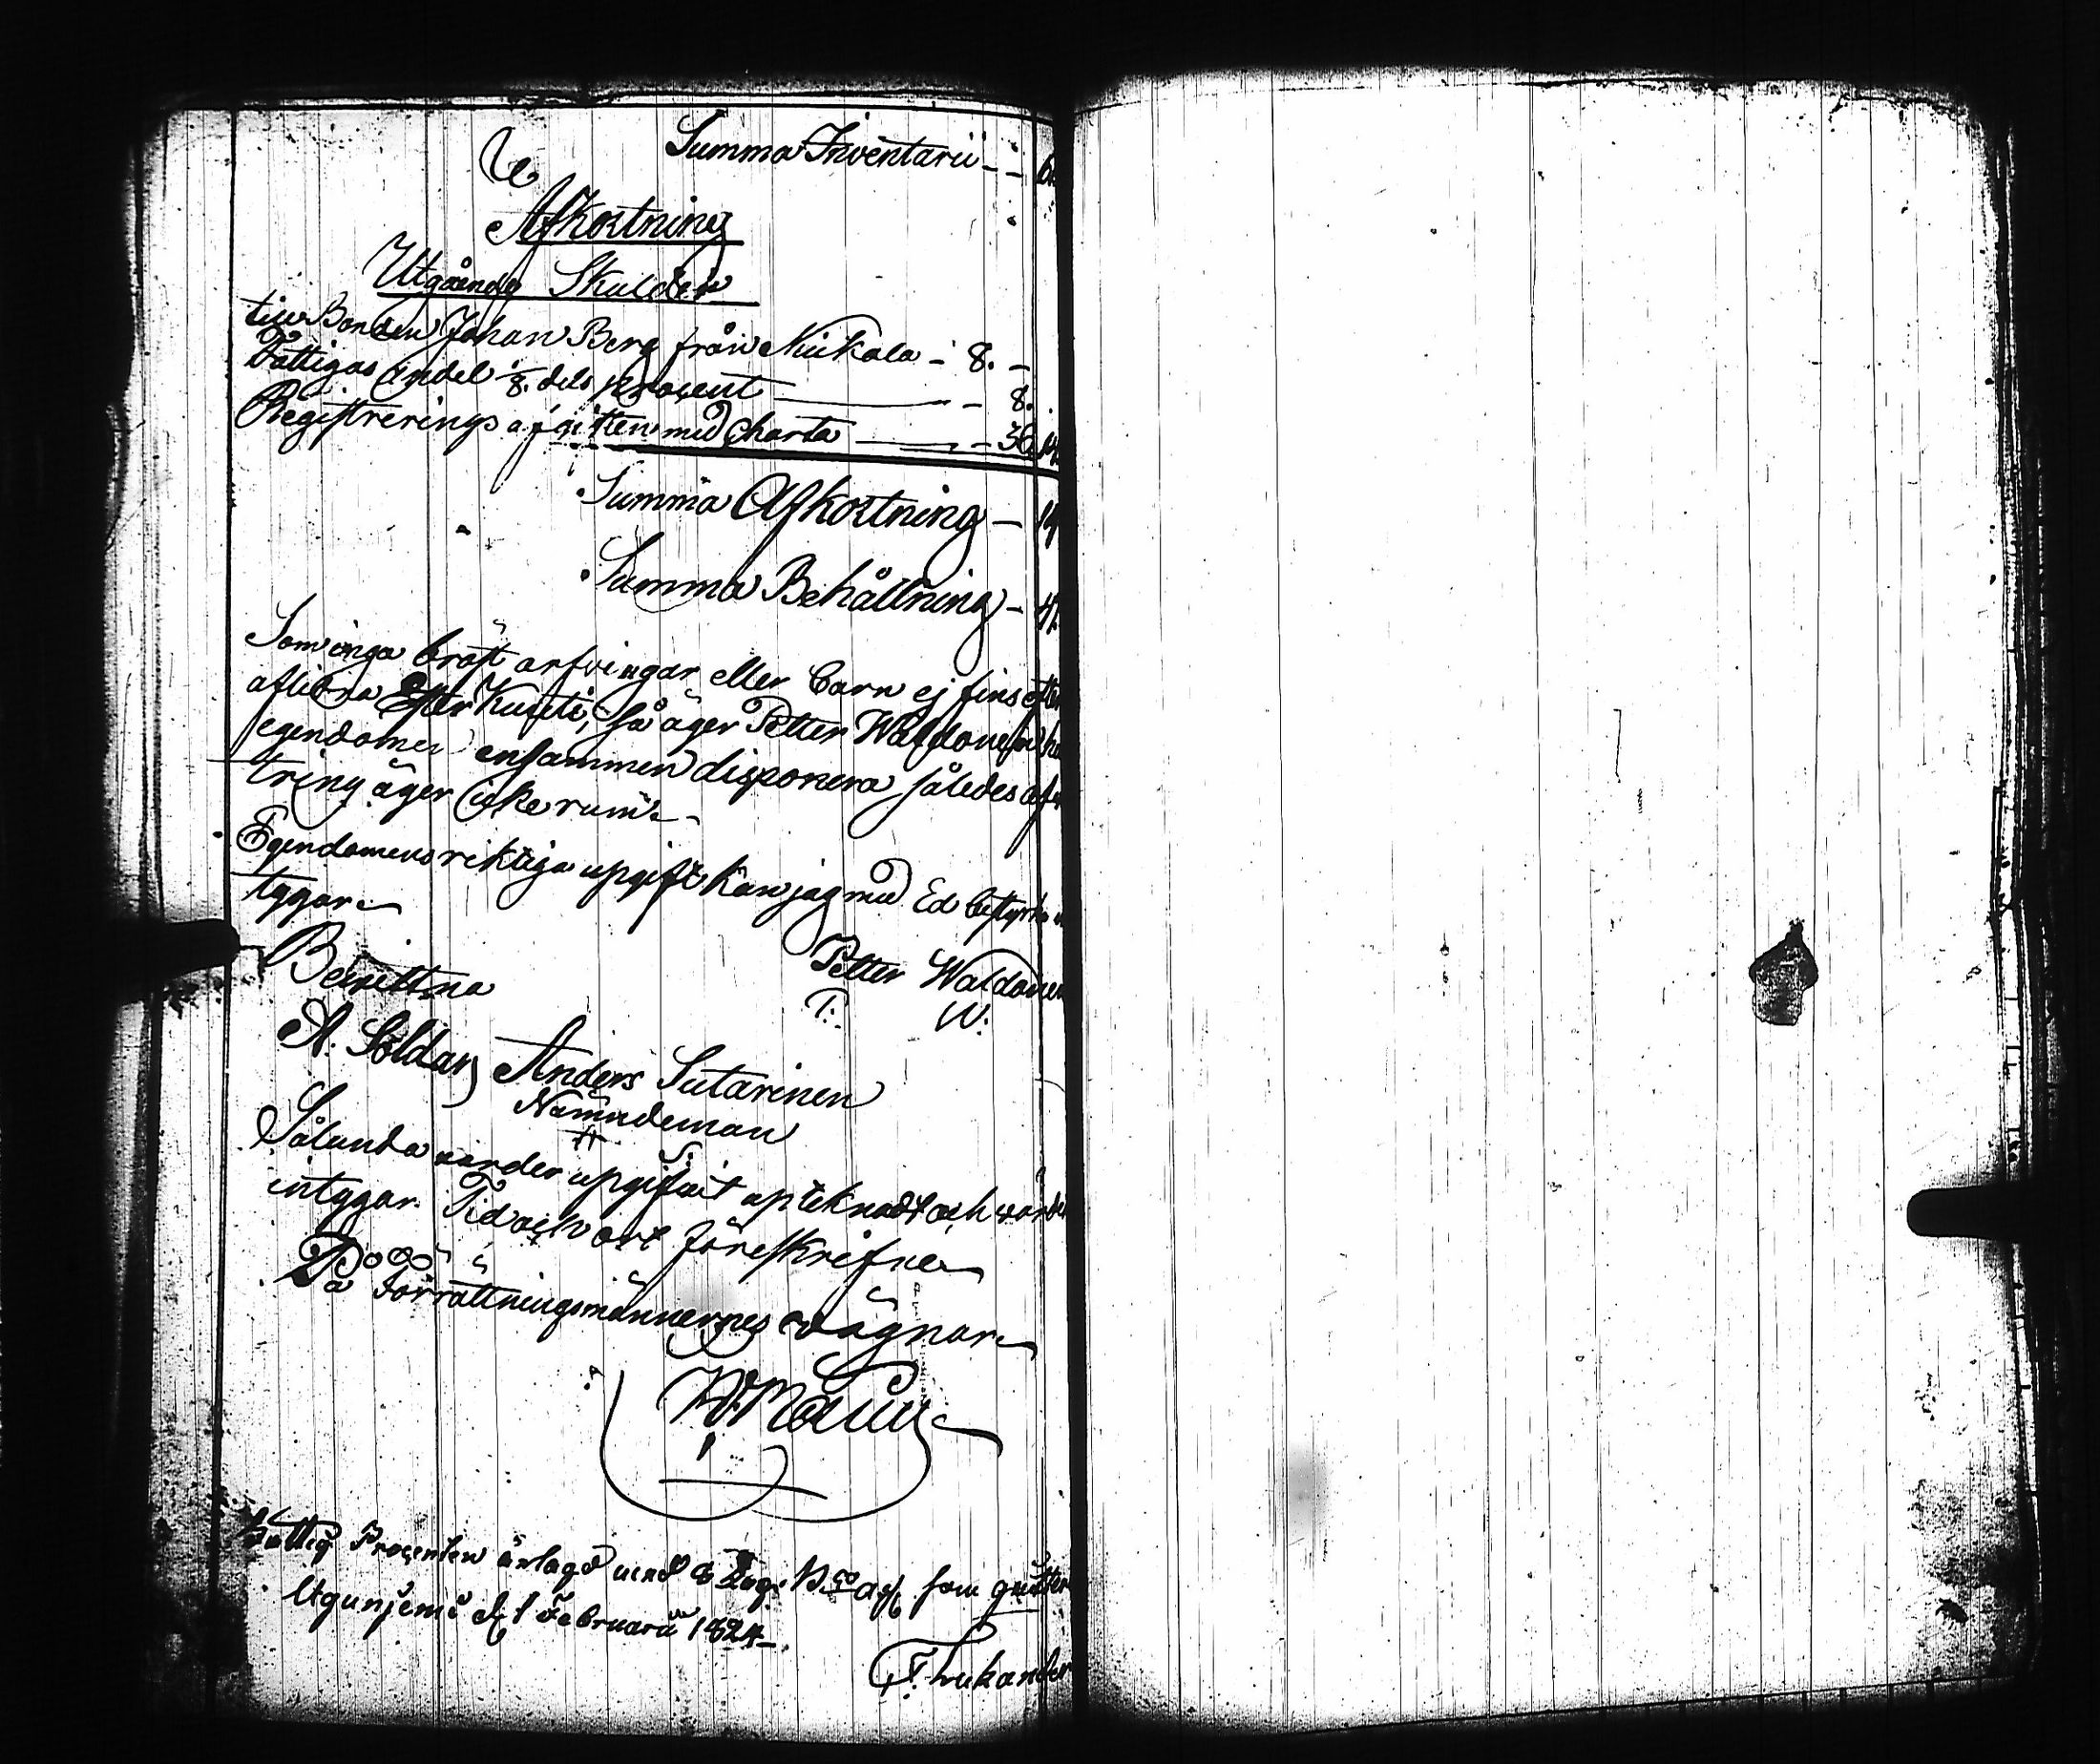 Summa Inventarii - - 6
Afkortning
Utgående Skulder
till Bonden Johan Berg från Nickala - 8. -
Fattigas andel 1/8. dels procent - 8.
Registrerings afgiften med Charta - 36. 14
Summa Afkortning - 14
Summa Behållning - 47.
Som inga bröst arfvingar eller barn ej fins efter
aflidna Ester Kunti, så äger Petter Waldonen
egendomen ensammen disponera således af
tring äger icke rum.
Egendomens riktiga upgift kan jag med Ed bestyrka
tygar
Petter Waldonen
P: W:
Bewittna
A. Soldan Anders Sutarinen
Nämndeman
A S:
Sålunda warder upgifvit upteknadt och
intygar. Tid och ort föreskrifne
På Förrättningsmännernes wägnar
Fattig Procenten erlagd med 8 B:co Ass, som
d. 1 Februarii 1824.
F. Lukander